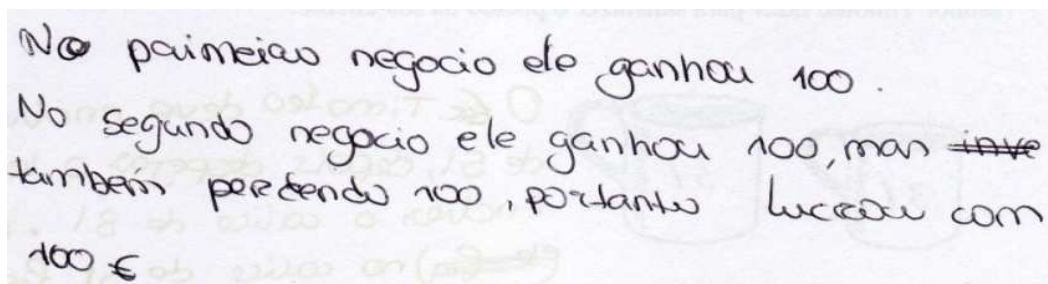 No primeiro negocio ele ganhou 100.
No segundo negocio ele ganhou 100, mas
também perdendo 100, portanto lucrou com
100 €